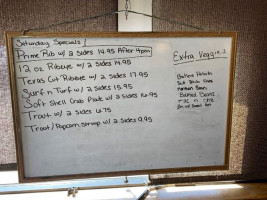 Saturday Specials!
Prime Rib w/ 2 Sides 14.95 After 4pm
12 oz Ribeye w/ 2 Sides 14.95
Texas Cut Ribeye w/ 2 Sides 17.95
Surf n Turf w/ 2 Sides 15.95
Soft Shell Crab Plate w/ 2 Sides 16.95
Trout w/ 2 Sides 6.75
Trout/Popcorn Shrimp w/ 2 Sides 9.95
Extra Veggies
Baked Potato
Baked Beans